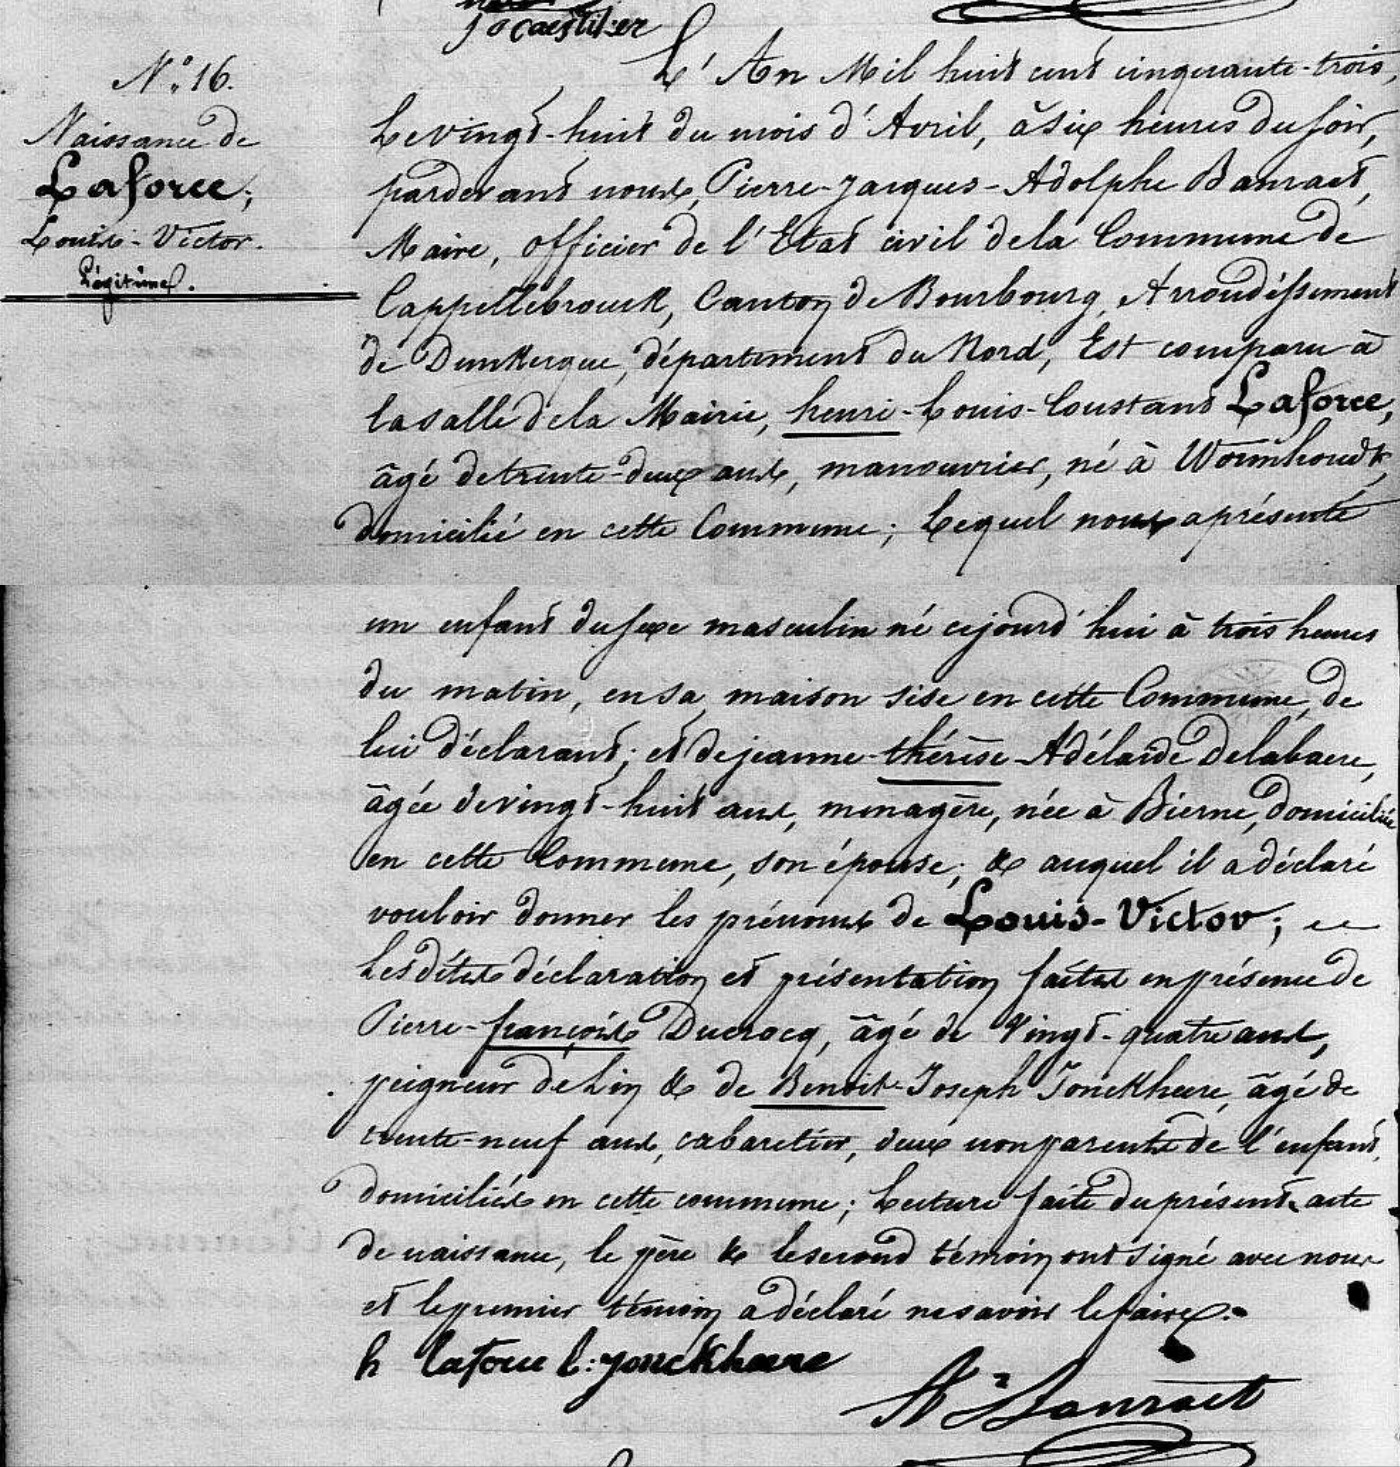 N.° 16.
Naissance de
Laforce,
Louis-Victor.
Légitime.
L'An Mil huit cent cinquante-trois,
Le vingt-huit du mois d'Avril, à six heures du soir,
pardevant nous, Pierre-Jacques-Adolphe Banraet,
Maire, officier de l'Etat civil de la Commune de
Cappellebrouck, Canton de Bourbourg, Arrondissement
de Dunkerque, département du Nord, Est comparu à
la salle de la Mairie, henri-Louis-Constant Laforce,
âgé de trente-deux ans, manouvrier, né à Wormhoudt,
domicilié en cette Commune; Lequel nous a présenté
un enfant du sexe masculin né cejourd'hui à trois heures
du matin, en sa maison sise en cette Commune, de
lui déclarant; et de jeanne-thérèse-Adélaïde Delabaere,
âgée de vingt-huit ans, menagère, née à Bierne, domiciliée
en cette Commune, son épouse; & auquel il a déclaré
vouloir donner les prénoms de Louis-Victor;
Lesdites déclaration et présentation faites en présence de
Pierre-françois Ducrocq, âgé de Vingt-quatre ans,
peigneur de Lin & de Benoit-Joseph Jonckheere, âgé de
trente-neuf ans, cabaretier, deux non parents de l'enfant,
domiciliés en cette commune; Lecture faite du présent acte
de naissance, le père & le second témoin ont signé avec nous
et le premier témoin a déclaré ne savoir le faire.
h laforce b: jonckheere
Ad Banraet